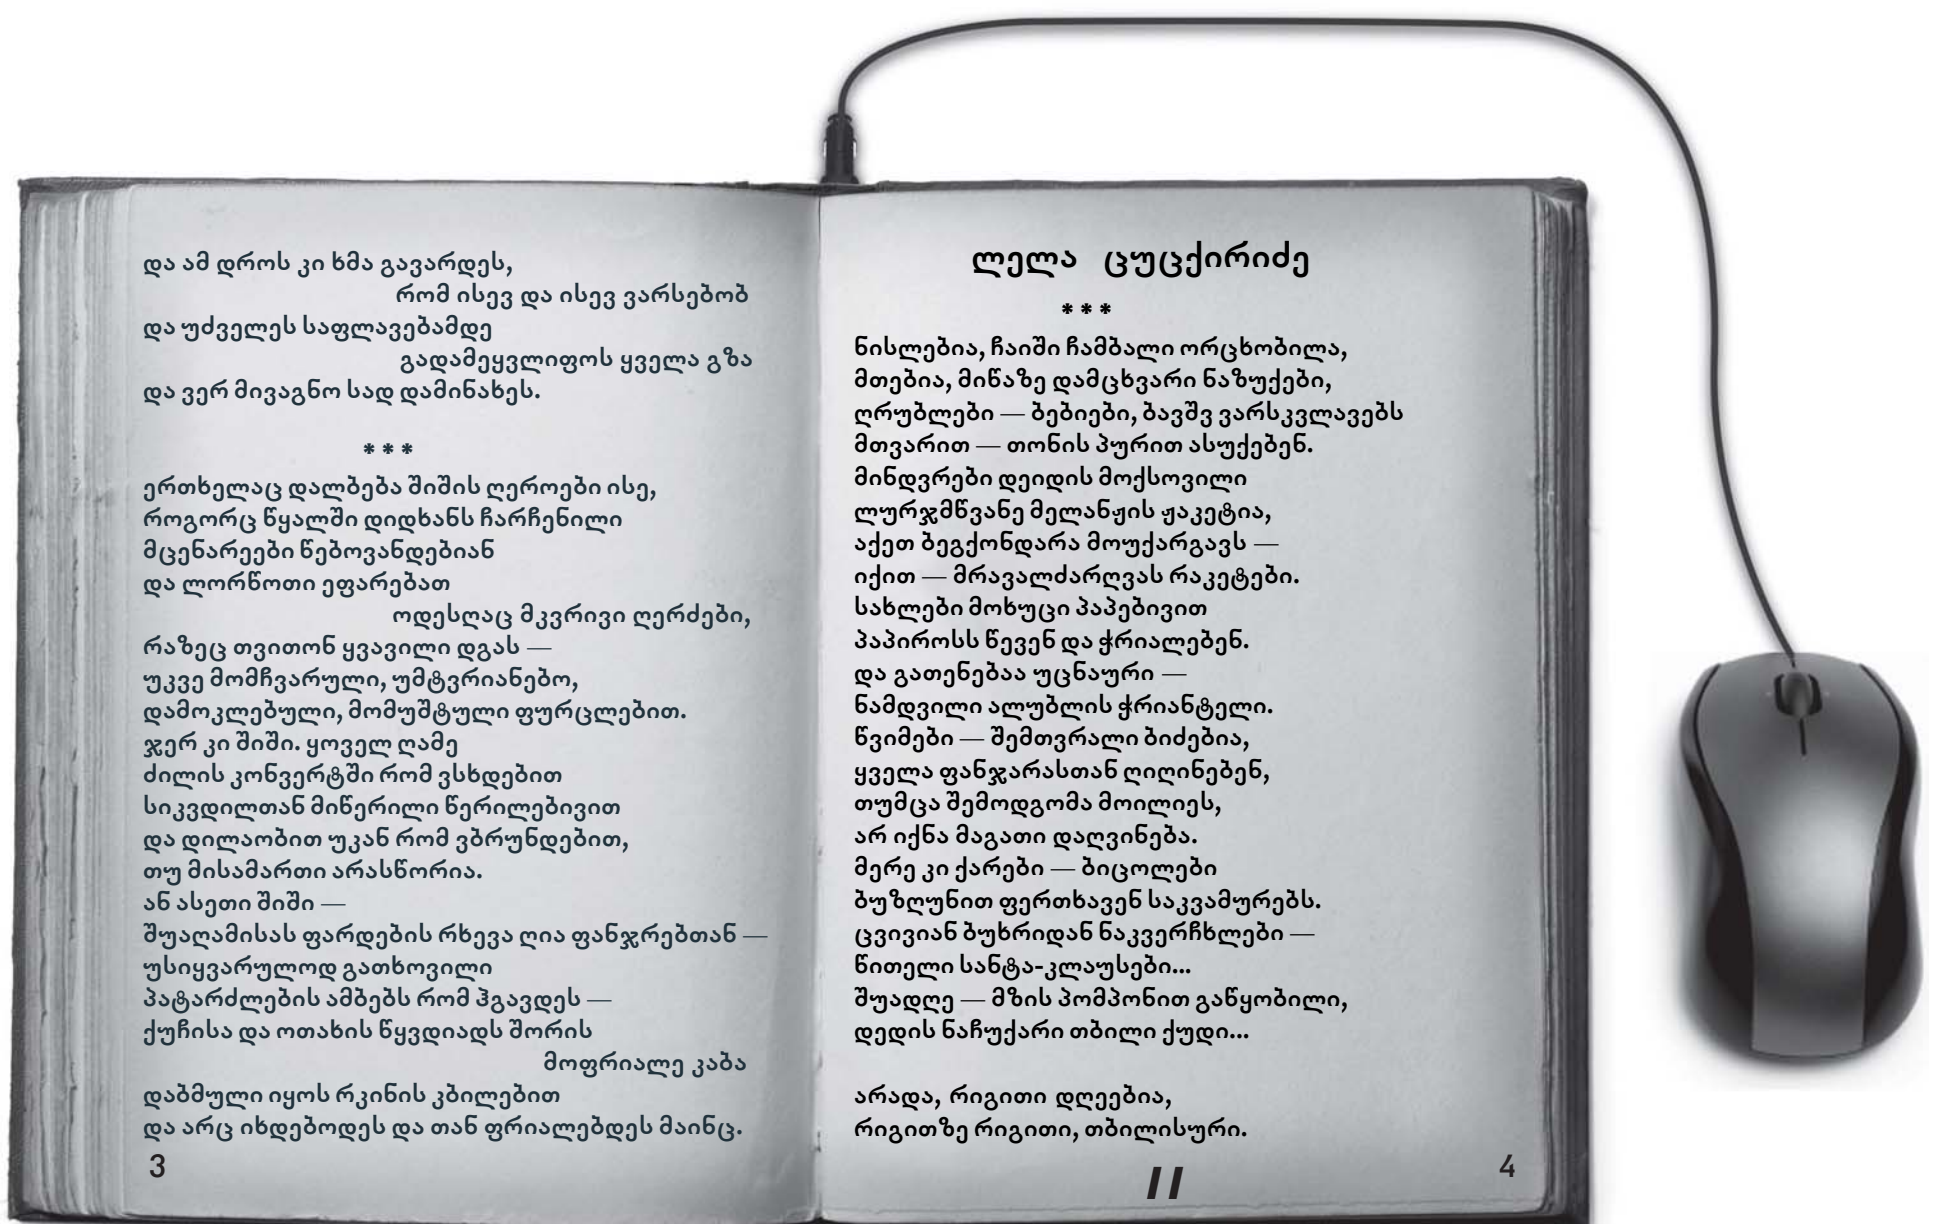 და ამ დროს კი ხმა გავარდეს,
რომ ისევ და ისევ ვარსებობ
და უძველეს საფლავებამდე
გადამეყვლიფოს ყველა გზა
და ვერ მივაგნო სად დამინახეს.
***
ერთხელაც დალბება შიშის ღეროები ისე,
როგორც წყალში დიდხანს ჩარჩენილი
მცენარეები წებოვანდებიან
და ლორწოთი ეფარებათ
ოდესღაც მკვრივი ღერძები,
რაზეც თვითონ ყვავილი დგას —
უკვე მომჩვარული, უმტვრიანებო,
დამოკლებული, მომუშტული ფურცლებით.
ჯერ კი შიში. ყოველ ღამე
ძილის კონვერტში რომ ვსხდებით
სიკვდილთან მიწერილი წერილებივით
და დილაობით უკან რომ ვბრუნდებით,
თუ მისამართი არასწორია.
ან ასეთი შიში —
შუაღამისას ფარდების რხევა ღია ფანჯრებთან —
უსიყვარულოდ გათხოვილი
პატარძლების ამბებს რომ ჰგავდეს —
ქუჩისა და ოთახის წყვდიადს შორის
მოფრიალე კაბა
დაბმული იყოს რკინის კბილებით
და არც იხდებოდეს და თან ფრიალებდეს მაინც.
3
ლელა ცუცქირიძე
***
ნისლებია, ჩაიში ჩამბალი ორცხობილა,
მთებია, მიწაზე დამცხვარი ნაზუქები,
ღრუბლები — ბებიები, ბავშვ ვარსკვლავებს
მთვარით — თონის პურით ასუქებენ.
მინდვრები დეიდის მოქსოვილი
ლურჯმწვანე მელანჟის ჟაკეტია,
აქეთ ბეგქონდარა მოუქარგავს —
იქით — მრავალძარღვას რაკეტები.
სახლები მოხუცი პაპებივით
პაპიროსს წევენ და ჭრიალებენ.
და გათენებაა უცნაური —
ნამდვილი ალუბლის ჭრიანტელი.
წვიმები — შემთვრალი ბიძებია,
ყველა ფანჯარასთან ღიღინებენ,
თუმცა შემოდგომა მოილიეს,
არ იქნა მაგათი დაღვინება.
მერე კი ქარები — ბიცოლები
ბუზღუნით ფერთხავენ საკვამურებს.
ცვივიან ბუხრიდან ნაკვერჩხლები —
წითელი სანტა-კლაუსები...
შუადღე — მზის პომპონით გაწყობილი,
დედის ნაჩუქარი თბილი ქუდი...
არადა, რიგითი დღეებია,
რიგითზე რიგითი, თბილისური.
II
4